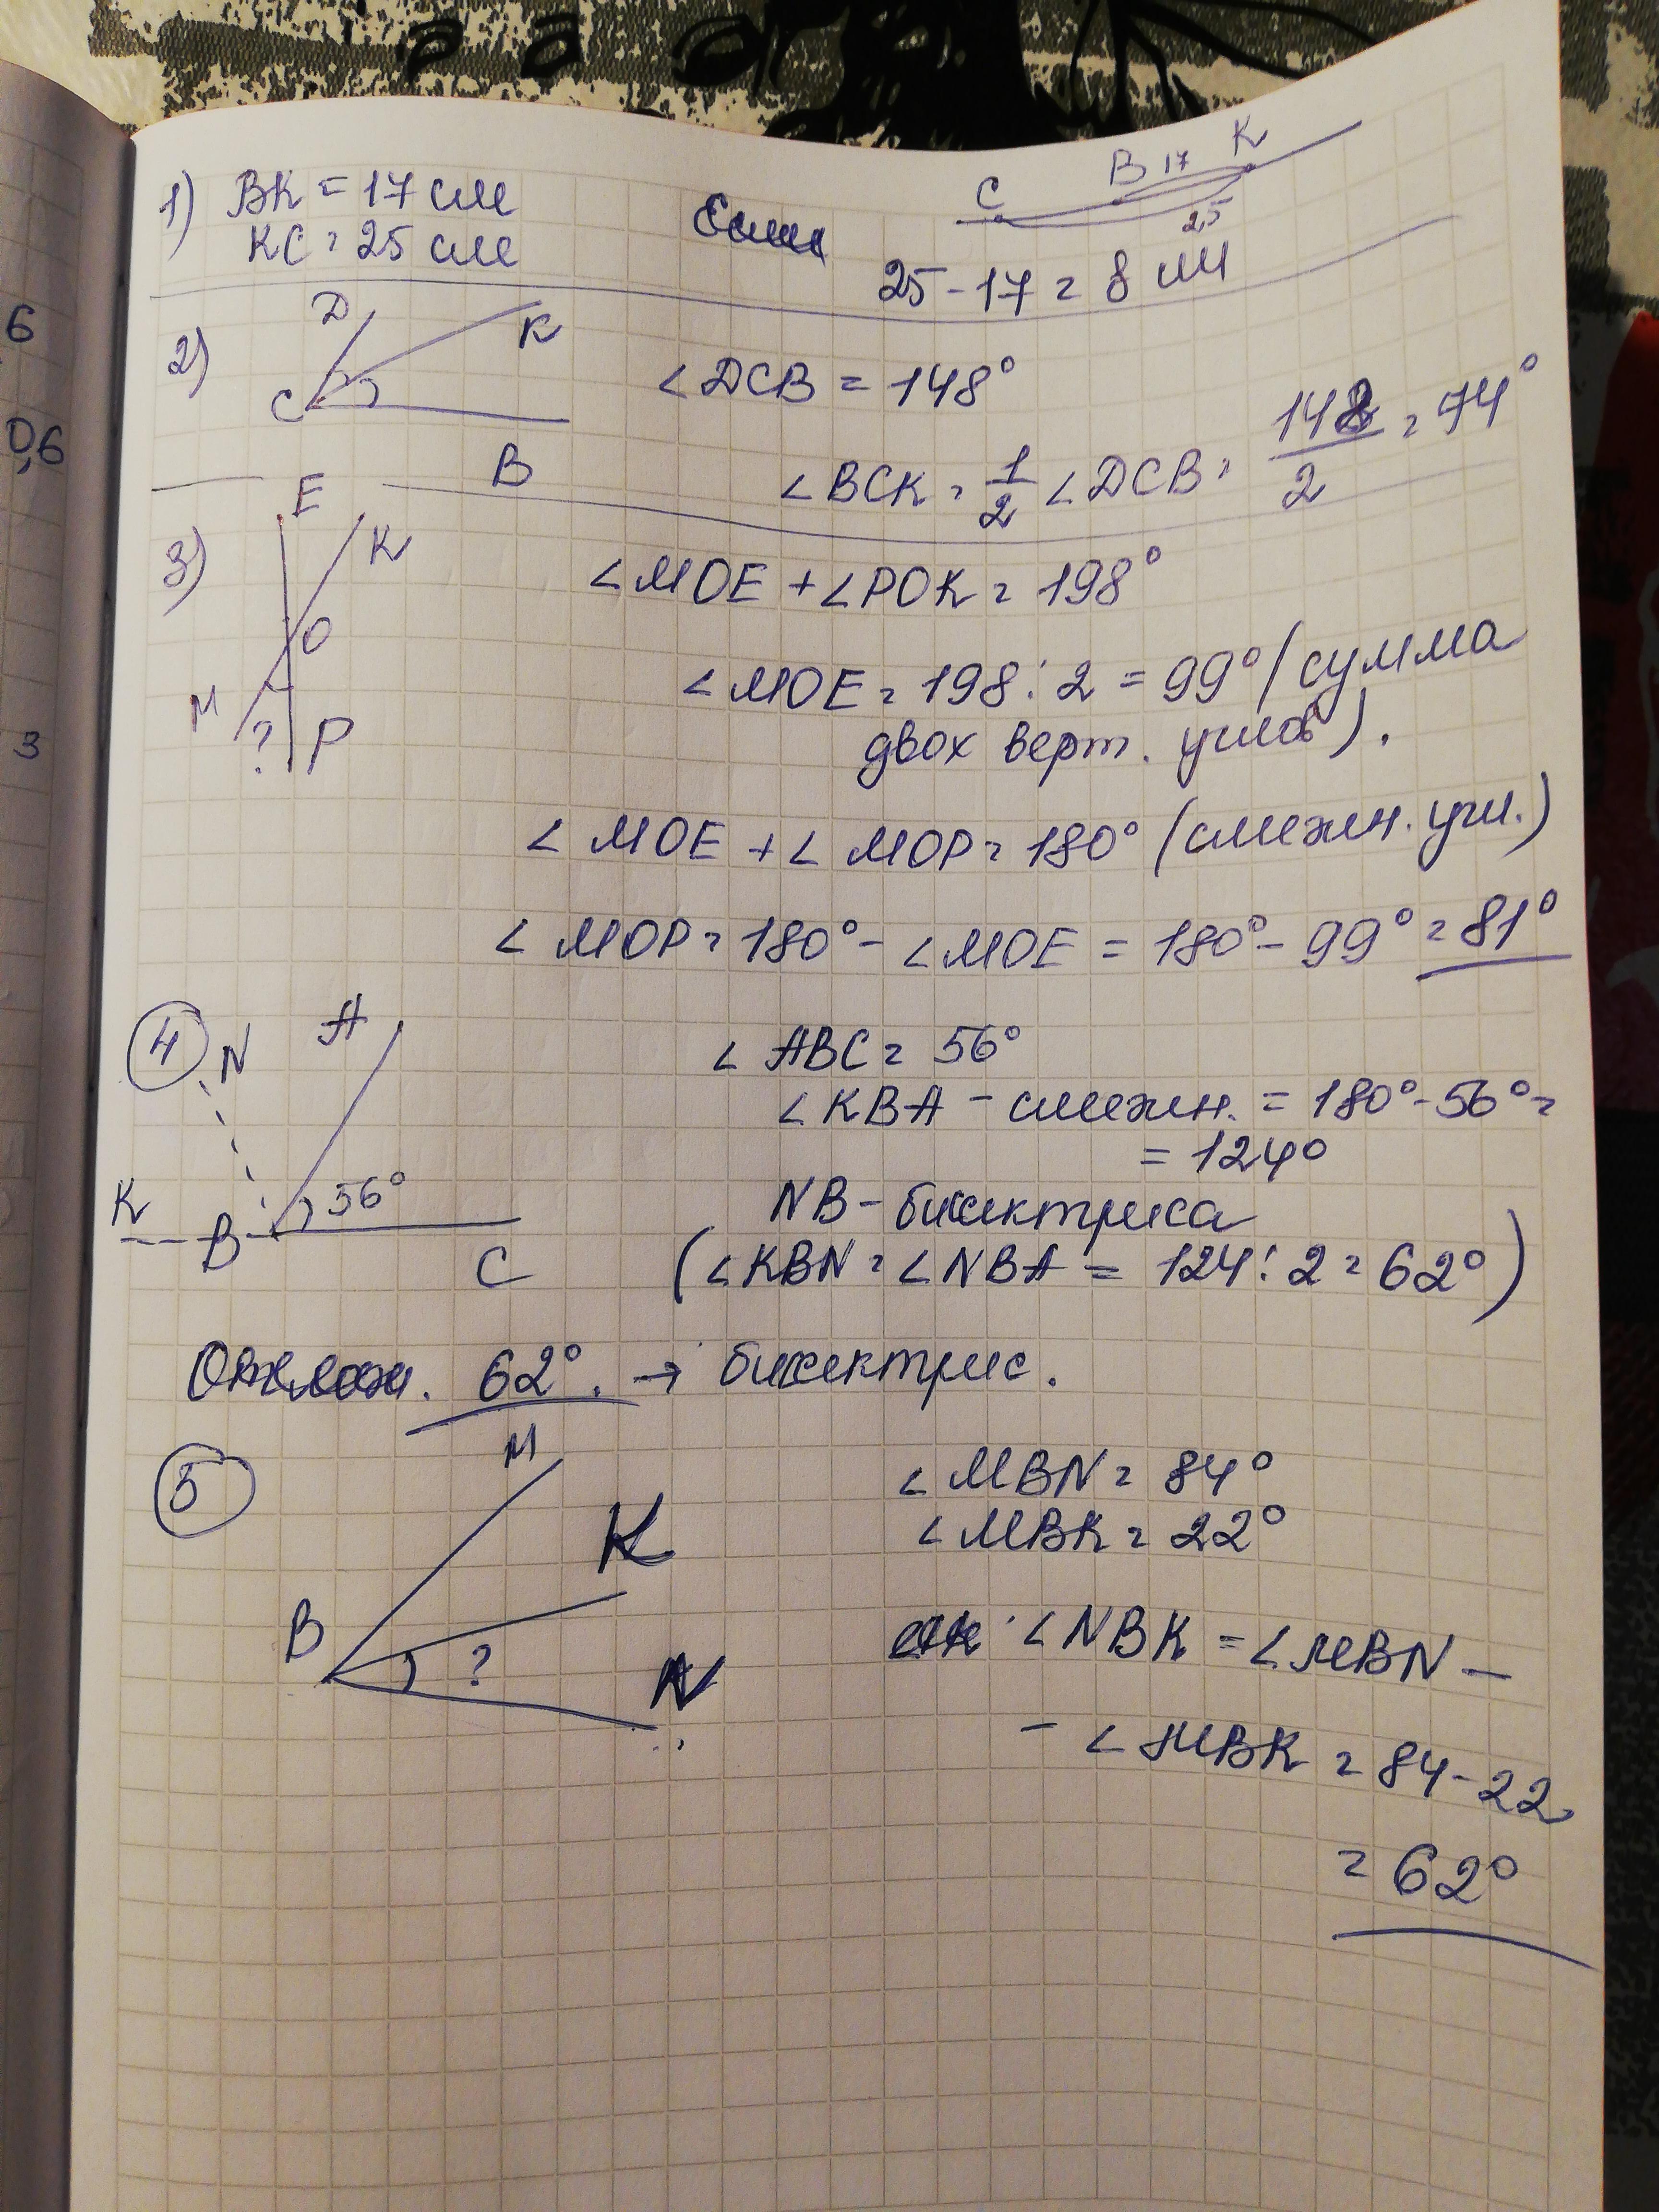 6
0,6
3
1) BK = 17 см
KC = 25 см
C B 17 K
25
25 - 17 = 8 см
2) D K
C
B
∠DCB = 148°
∠BCK = 1/2 ∠DCB = 148/2 = 74°
3) E K
O
M ? P
∠MOE + ∠POK = 198°
∠MOE = 198 : 2 = 99° (сумма
двох верт. углов).
∠MOE + ∠MOP = 180° (смежн. угл.)
∠MOP = 180° - ∠MOE = 180° - 99° = 81°
4 N A
K B 56°
C
∠ABC = 56°
∠KBA - смежн. = 180° - 56° =
= 124°
NB - биссектриса
(∠KBN = ∠NBA = 124 : 2 = 62°)
62°. → биссектрис.
5 M
K
B ?
N
∠MBN = 84°
∠MBK = 22°
∠NBK = ∠MBN -
- ∠MBK = 84 - 22
= 62°